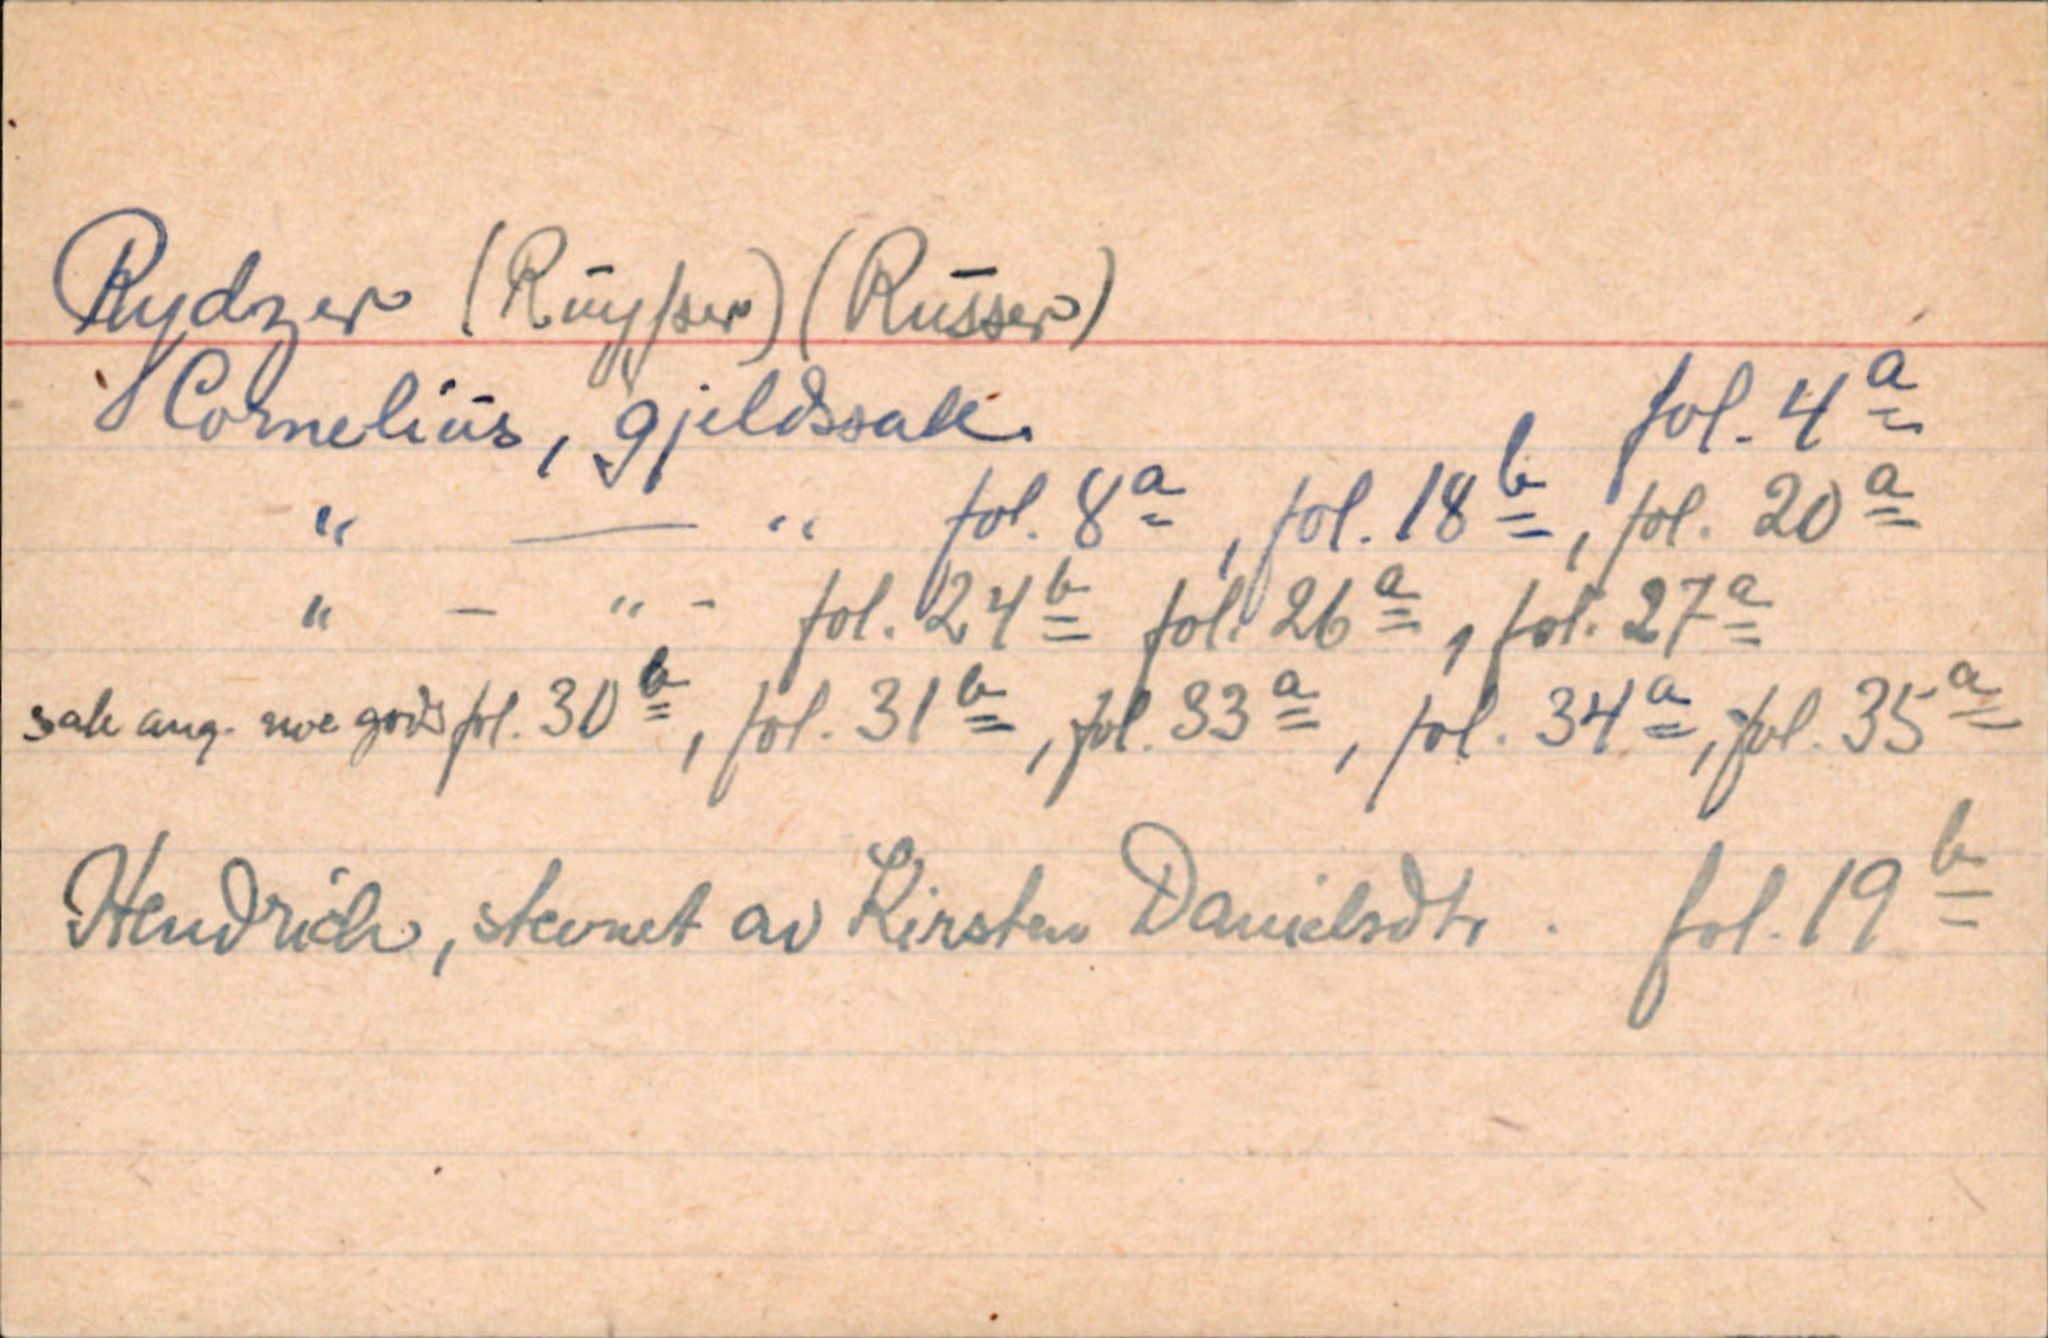 Rydzer (Ruysser) (Russer)
Cornelius, gjeldssak. fol. 4a
" — " fol. 8a, fol. 18b, fol. 20a
" - " - fol. 24b fol. 26a, fol. 27a
sak ang. noe gods fol. 30b, fol. 31b, fol. 33a, fol. 34a, fol. 35a
Hendrich, stevnet av Kirsten Danielsdtr. fol. 19b